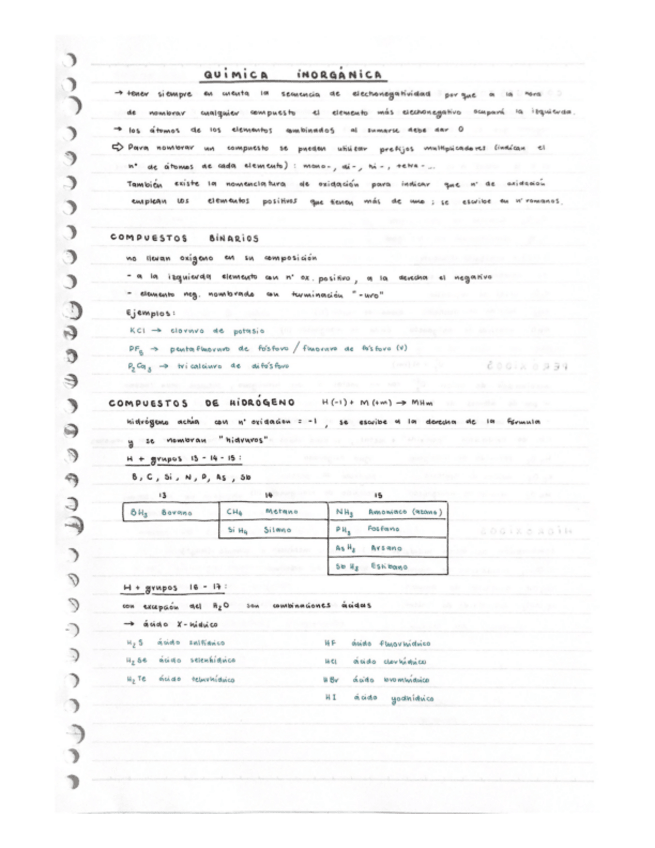 QUÍMICA INORGÁNICA
→ tener siempre en cuenta la secuencia de electronegatividad porque a la hora
de nombrar cualquier compuesto el elemento más electronegativo ocupará la izquierda.
→ los átomos de los elementos combinados al sumarse debe dar 0
⇨ Para nombrar un compuesto se pueden utilizar prefijos multiplicadores (indican el
nº de átomos de cada elemento): mono-, di-, tri-, tetra-...
También existe la nomenclatura de oxidación para indicar que nº de oxidación
emplean los elementos positivos que tienen más de uno; se escribe en nº romanos.
COMPUESTOS BINARIOS
no llevan oxígeno en su composición
- a la izquierda elemento con nº ox. positivo, a la derecha el negativo
- elemento neg. nombrado con terminación "-uro"
Ejemplos:
KCl → cloruro de potasio
PF5 → pentafluoruro de fósforo / fluoruro de fósforo (V)
P2Ca3 → tricalciuro de difósforo
COMPUESTOS DE HIDRÓGENO H(-1) + M(+m) → MHm
hidrógeno actúa con nº oxidación = -1, se escribe a la derecha de la fórmula
y se nombran "hidruros"
H + grupos 13 - 14 - 15:
B, C, Si, N, P, As, Sb
13 14 15
BH3 Borano CH4 Metano NH3 Amoniaco (azano)
SiH4 Silano PH3 Fosfano
AsH3 Arsano
SbH3 Estibano
H + grupos 16 - 17:
con excepción del H2O son combinaciones ácidas
→ ácido X-hídrico
H2S ácido sulfídrico HF ácido fluorhídrico
H2Se ácido selenhídrico HCl ácido clorhídrico
H2Te ácido telurhídrico HBr ácido bromhídrico
HI ácido yodhídrico